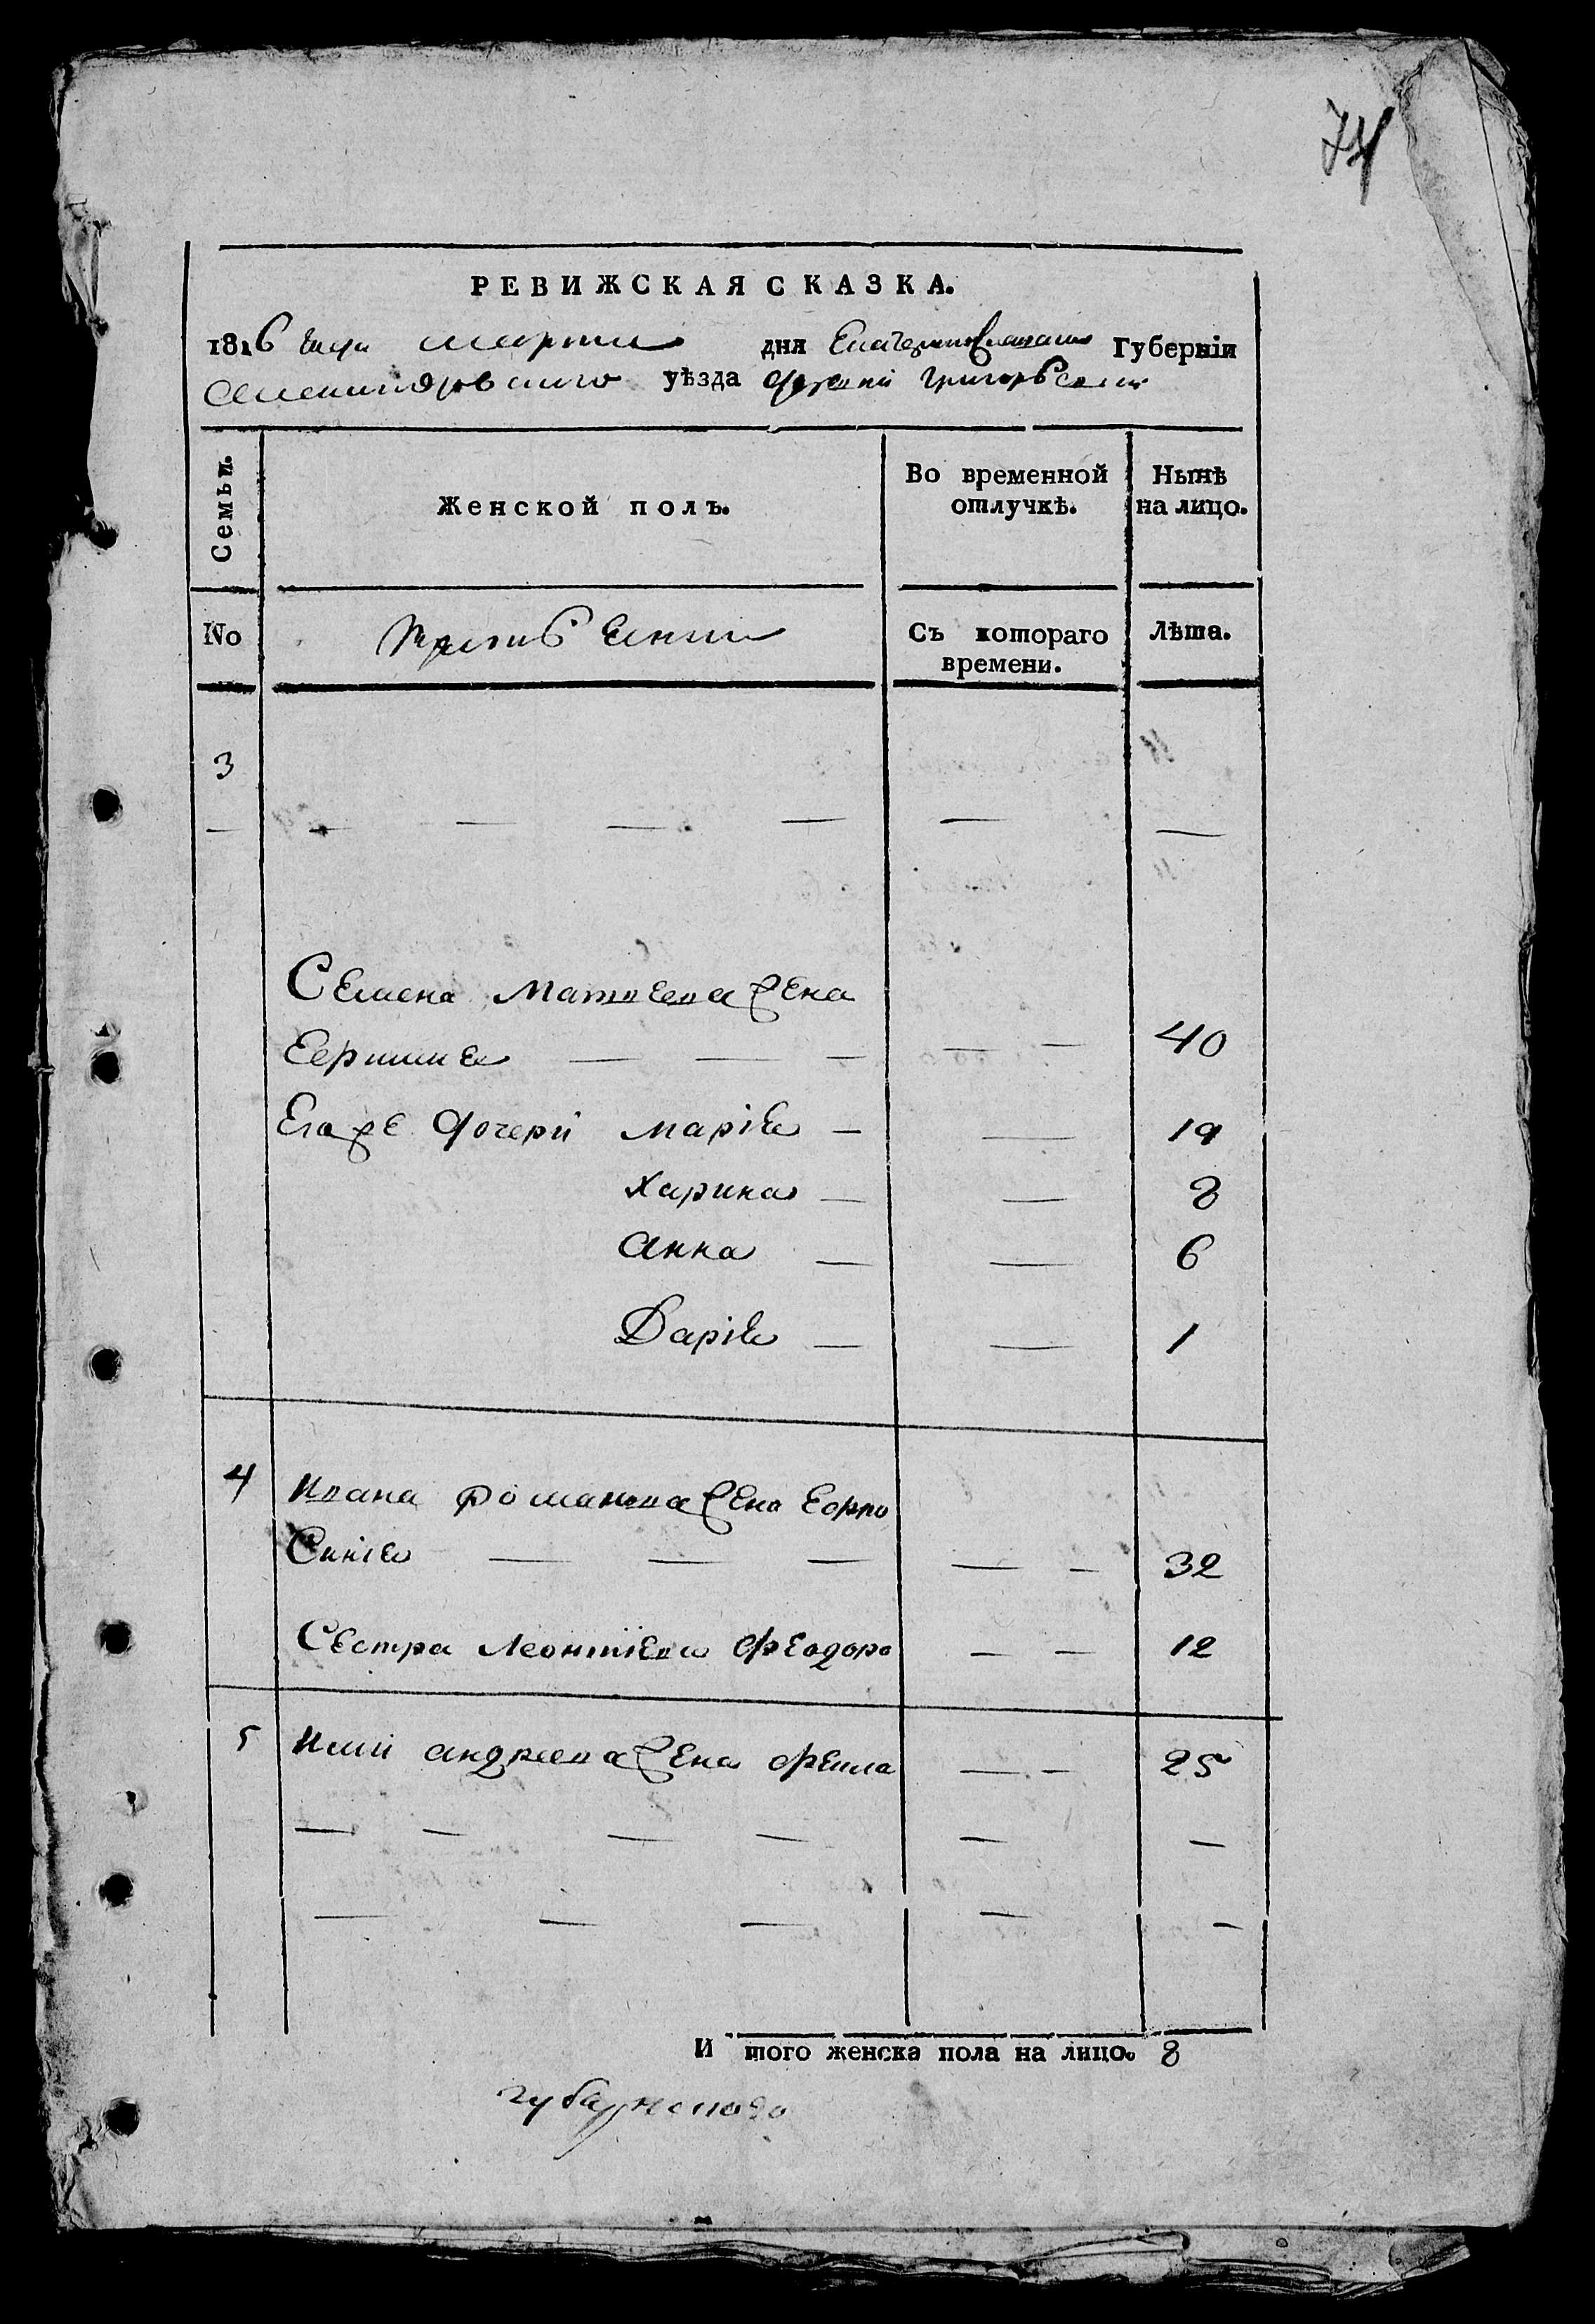 74
РЕВИЖСКАЯ СКАЗКА.
1816 года марта дня Екатеринославской Губерніи
Александровскаго уѣзда
Семьи. Женской полъ. Во временной отлучкѣ. Нынѣ на лицо.
No Съ котораго времени. Лѣта.
3
— — — — — — —
Семена Матвеева жена
— — — — — 40
Егоже дочери Марія — — 19
Харина — — 8
Анна — — 6
Дарія — — 1
4 Ивана Романова жена Ефро
синія — — — — — 32
Сестра Леонтіева Феодора — — 12
5 андреева жена Фекла — — 25
— — — — — —
— — — — —
И того женска пола на лицо. 8